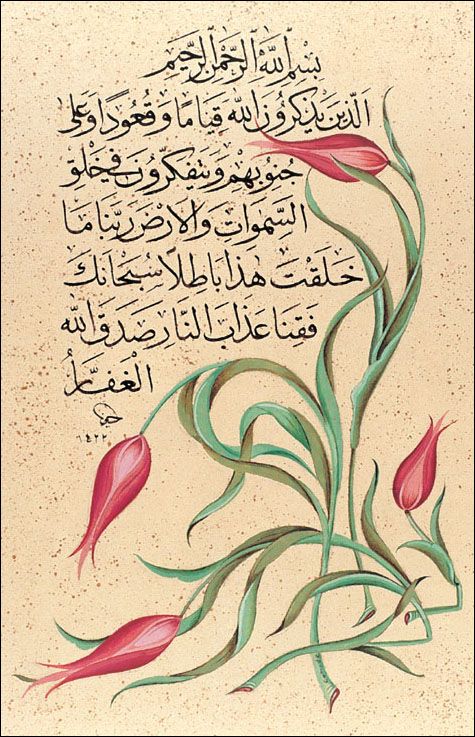 بِسْمِ اللّٰهِ الرَّحْمٰنِ الرَّحِيمِ
الَّذِينَ يَذْكُرُونَ اللّٰهَ قِيَامًا وَقُعُودًا وَعَلٰى
جُنُوبِهِمْ وَيَتَفَكَّرُونَ فِي خَلْقِ
السَّمٰوَاتِ وَالْاَرْضِ رَبَّنَا مَا
خَلَقْتَ هٰذَا بَاطِلًا سُبْحَانَكَ
فَقِنَا عَذَابَ النَّارِ صَدَقَ اللّٰهُ
الْغَفَّارُ
١٤٢٢